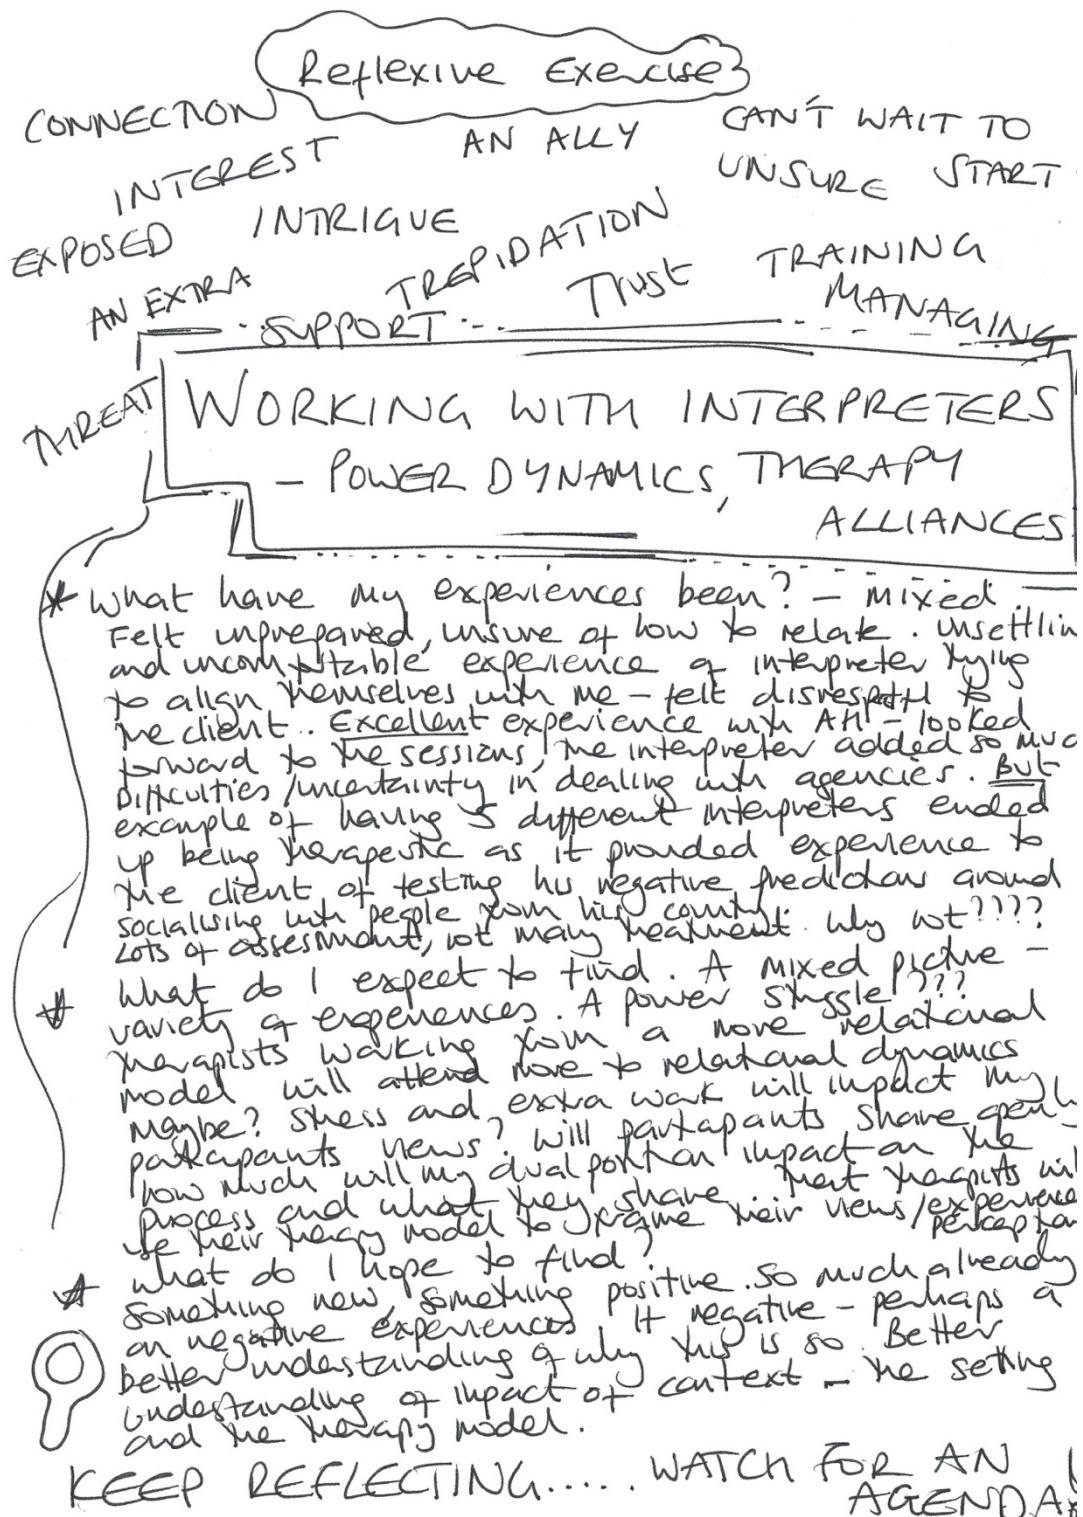 Reflexive Exercise
CONNECTION
AN ALLY
CAN'T WAIT TO
START
INTEREST
UNSURE
EXPOSED
INTRIGUE
TREPIDATION
Trust
TRAINING
AN EXTRA
SUPPORT
MANAGING
THREAT
WORKING WITH INTERPRETERS
- POWER DYNAMICS, THERAPY
ALLIANCES
* What have my experiences been? - mixed.
Felt unprepared, unsure of how to relate. Unsettlin
and uncomfortable experience of interpreter trying
to align themselves with me - felt disrespectful to
the client. Excellent experience with AH - looked
forward to the sessions, the interpreter added so muc
Difficulties/uncertainty in dealing with agencies. But
example of having 5 different interpreters ended
up being therapeutic as it provided experience to
the client of testing his negative predictions around
socialising with people from his country.
Lots of assessment, not many treatment. Why not????
* What do I expect to find. A mixed picture -
variety of experiences. A power struggle????
Therapists working from a more relational
model will attend more to relational dynamics
maybe? Stress and extra work will impact my
participants views? Will participants share openly
how much will my dual position impact on the
process and what they share. That therapists wil
use their therapy model to frame their views/experience
perception
* What do I hope to find?
Something new, something positive. So much already
on negative experiences. If negative - perhaps a
better understanding of why this is so. Better
understanding of impact of context - the setting
and the therapy model.
KEEP REFLECTING..... WATCH FOR AN
AGENDA